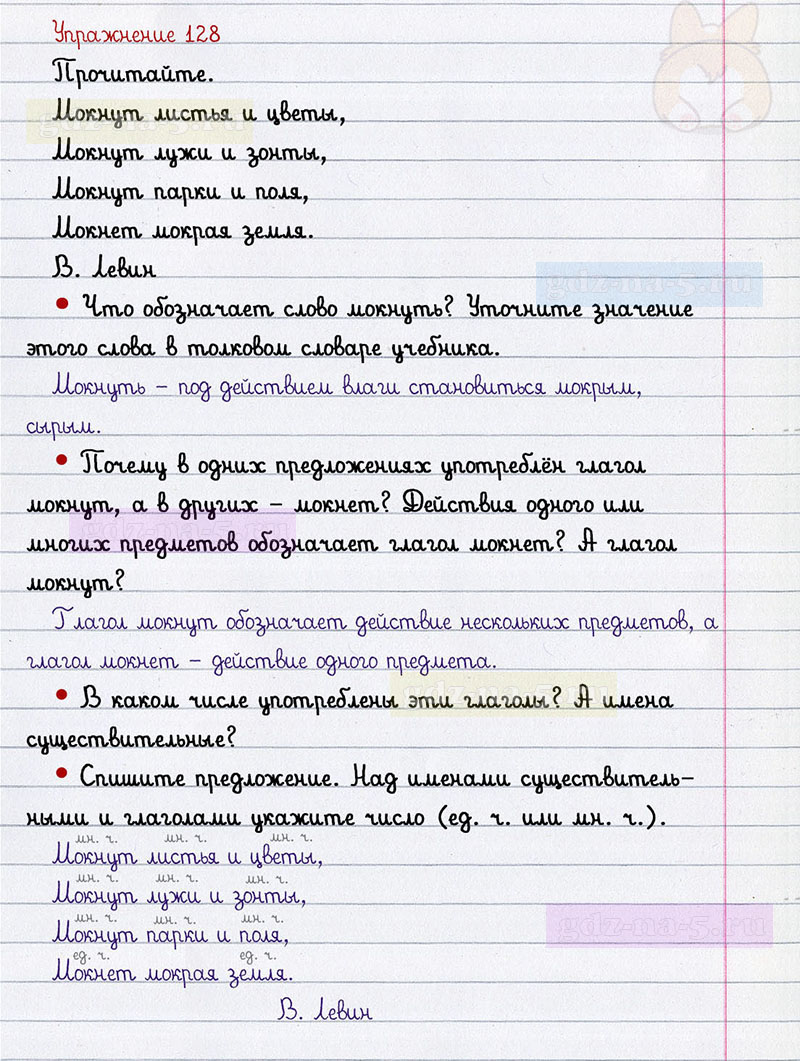 Упражнение 128
Прочитайте.
Мокнут листья и цветы,
Мокнут лужи и зонты,
Мокнут парки и поля,
Мокнет мокрая земля.
В. Левин
• Что обозначает слово мокнуть? Уточните значение
этого слова в толковом словаре учебника.
Мокнуть – под действием влаги становиться мокрым,
сырым.
• Почему в одних предложениях употреблён глагол
мокнут, а в других – мокнет? Действия одного или
многих предметов обозначает глагол мокнет? А глагол
мокнут?
Глагол мокнут обозначает действие нескольких предметов, а
глагол мокнет – действие одного предмета.
• В каком числе употреблены эти глаголы? А имена
существительные?
• Спишите предложение. Над именами существитель–
ными и глаголами укажите число (ед. ч. или мн. ч.).
мн. ч. мн. ч. мн. ч.
Мокнут листья и цветы,
мн. ч. мн. ч. мн. ч.
Мокнут лужи и зонты,
мн. ч. мн. ч. мн. ч.
Мокнут парки и поля,
ед. ч. ед. ч.
Мокнет мокрая земля.
В. Левин
gdz-na-5.ru
gdz-na-5.ru
gdz-na-5.ru
gdz-na-5.ru
gdz-na-5.ru